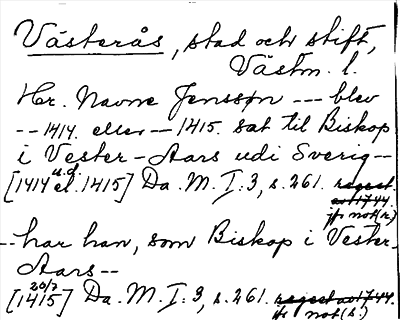 Västerås, stad och stift,
Västm. l.
Hr. Navne Jenssøn --- blev
-- 1414. eller -- 1415. sat til Biskop
i Vester-Aars udi Sverig--
u.d.
[1414 el. 1415] Da. M. I: 3, s. 261. regest.
av 1744.
jfr not(r.)
-- har han, som Biskop i Vester-
Aars --
20/7
[1415] Da. M. I: 3, s. 261. regest av 1744.
jfr not(s.)